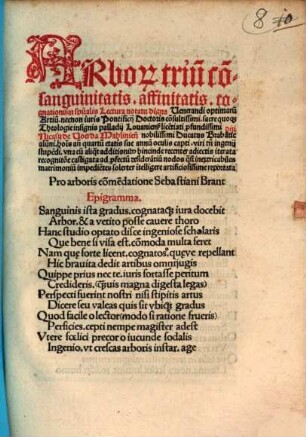 8
ARbor triū cō-
sanguinitatis, affinitatis, co-
gnationisq̄ spūalis Lectura notatu digna Venerandi optimarū
Artiū. necnon iuris Pontificij Doctoris cōsultissimi. sacre quoq̄
Theologie insignis palladij Louaniēsi licētiati ꝓfundissimi dñi
Nicasij de Voerda Mechliniēn nobilissimi Ducatus Brabātie
alūni. hoīs an quartū etatis sue annū oculis capti. viri tn̄ ingenij
recognite castigata
Pro arboris cōmēdatione Sebastiani Brant
Epigramma.
Sanguinis ista gradus. cognataq̄ iura docebit
Arbor. & a vetito posse cauere thoro
Hanc studio optato disce ingeniose scholaris
Que bene si visa est. cōmoda multa feret
Nam que forte licent. cognatos. queve repellant
Hic brauita dedit artibus omnijugis
Quippe prius nec te. iuris fortasse peritum
Credideris. (q̄uis magna digesta legas)
Perspecti fuerint nostri nisi stipitis artus
Dicere seu valeas quis sit vbiq̄ gradus
Quod facile o lector (modo si ratione frueris)
Perficies. cepti nempe magister adest
Vtere fœlici precor o iucunde sodalis
Ingenio. vt crescas arboris instar. age